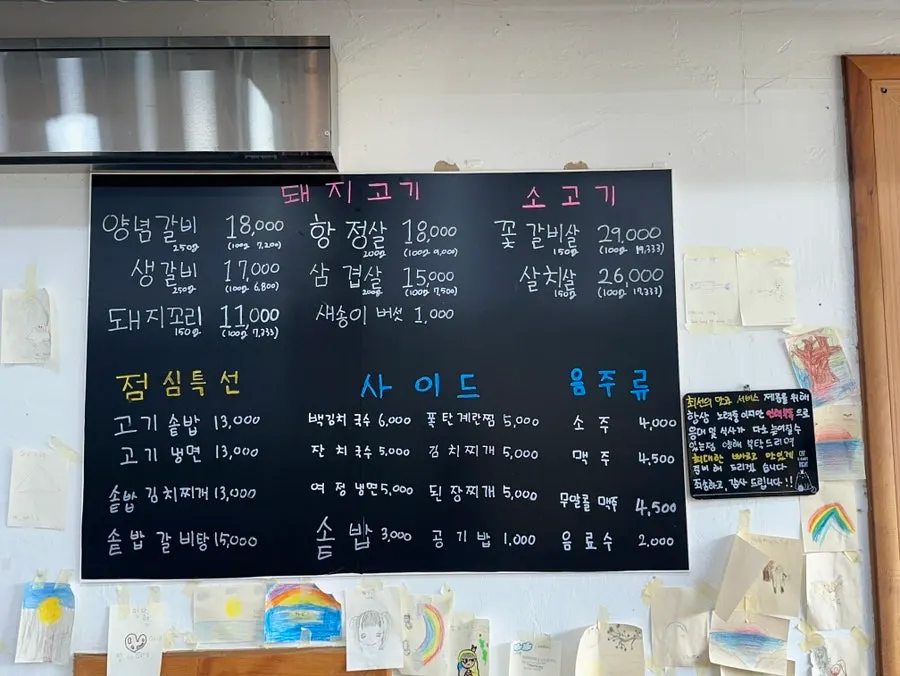 돼지고기
양념갈비 18,000
250g (100g 7,200)
생갈비 17,000
250g (100g 6,800)
돼지꼬리 11,000
150g (100g 7,333)
항정살 18,000
200g (100g 9,000)
삼겹살 15,000
200g (100g 7,500)
새송이 버섯 1,000
소고기
꽃갈비살 29,000
150g (100g 19,333)
살치살 26,000
150g (100g 17,333)
점심특선
고기 솥밥 13,000
고기 냉면 13,000
솥밥 김치찌개 13,000
솥밥 갈비탕 15,000
사이드
백김치국수 6,000
잔치국수 5,000
여정냉면 5,000
솥밥 3,000
폭탄계란찜 5,000
김치찌개 5,000
된장찌개 5,000
공기밥 1,000
음주류
소주 4,000
맥주 4,500
무알콜 맥주 4,500
음료수 2,000
최선의 맛과 서비스 제공을 위해
항상 노력중 이지만 인력부족으로
응대 및 식사가 다소 늦어질수
있는점 양해 부탁드리며
최대한 빠르고 맛있게
준비해 드리겠습니다
죄송하고, 감사 드립니다!!